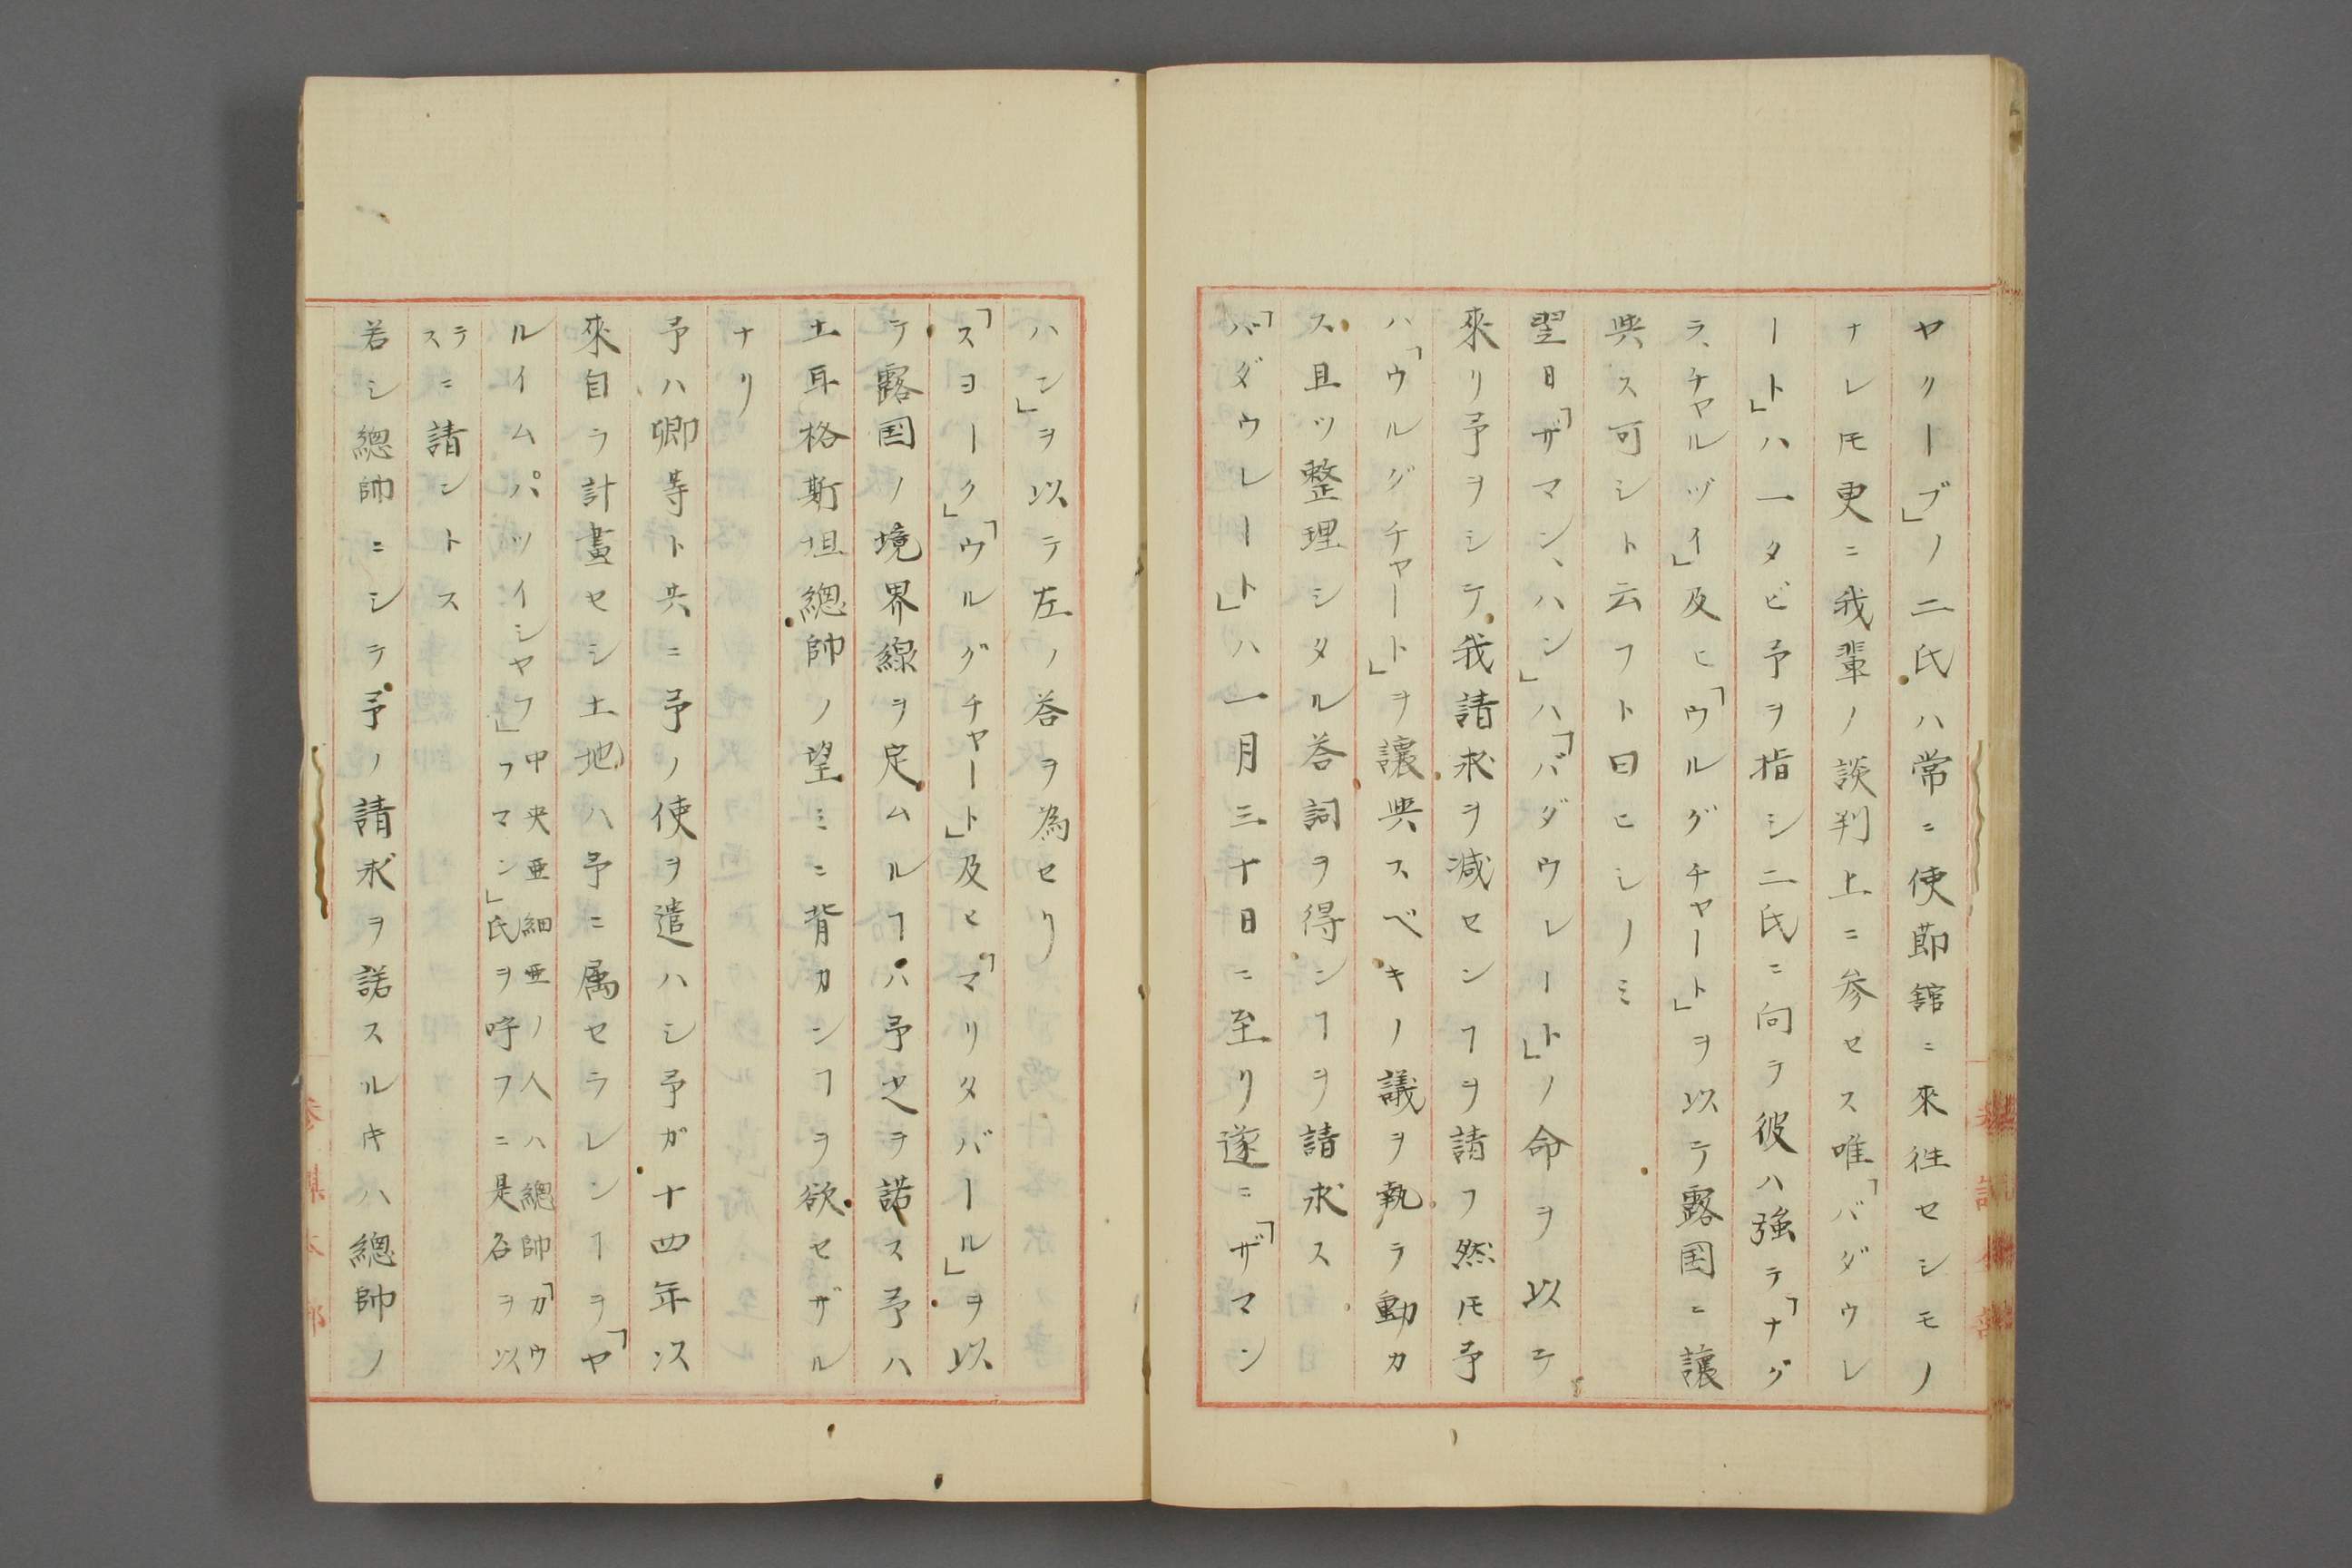 ヤクーブ」ノ二氏ハ常ニ使節舘ニ來徃セシモノ
ナレ𪜈更ニ我輩ノ談判上ニ参セス唯「バダウレ
ート」ハ一タビ予ヲ指シ二氏ニ向テ彼ハ強テ「ナグ
ラ、チャルヅイ」及ヒ「ウルグチャート」ヲ以テ露国ニ讓
與ス可シト云フト曰ヒシノミ
翌日「ザマン、ハン」ハ「バダウレート」ノ命ヲ以テ
來リ予ヲシテ我請求ヲ減センヿヲ請フ然𪜈予
ハ「ウルグチャート」ヲ讓與スベキノ議ヲ執ラ動カ
ス且ツ整理シタル荅詞ヲ得ンヿヲ請求ス
「バダウレート」ハ一月三十日ニ至リ遂ニ「ザマン
ハン」ヲ以テ左ノ荅ヲ為セリ
「スヨーク」「ウルグチャート」及ヒ「マリタバール」ヲ以
テ露国ノ境界線ヲ定ムルヿハ予之ヲ諾ス予ハ
土耳格斯坦總帥ノ望ミニ背カンヿヲ欲セザル
ナリ
予ハ卿等ト共ニ予ノ使ヲ遣ハシ予ガ十四年以
來自ラ計畫セシ土地ハ予ニ属セラレンヿヲ「ヤ
ルイムパツイシヤフ」中央亜細亜ノ人ハ總帥「カウ
フマン」氏ヲ呼フニ是名ヲ以
テ
スニ請ントス
若シ總帥ニシテ予ノ請求ヲ諾スルキハ總帥ノ